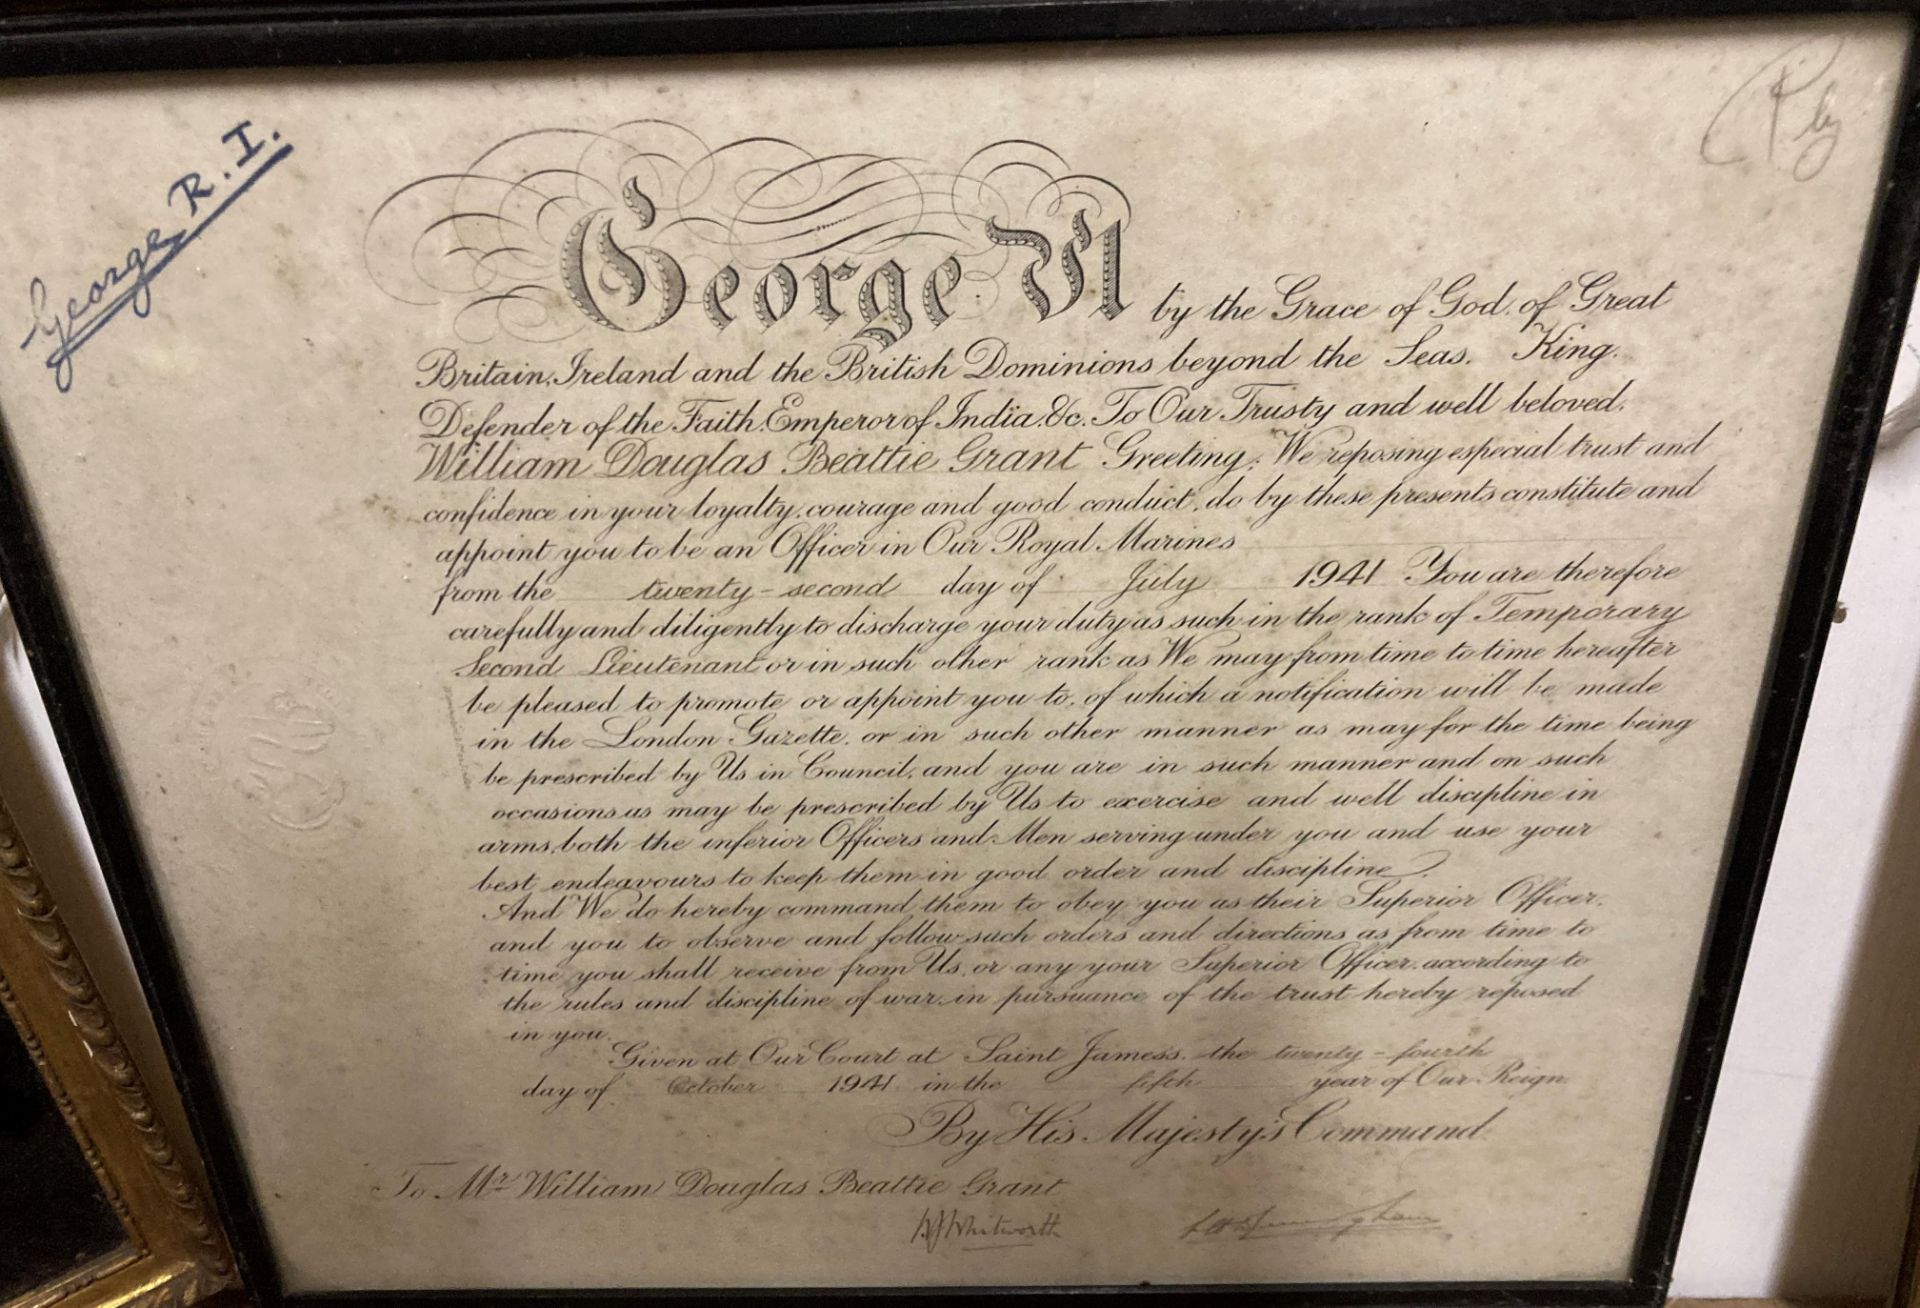 George R.I.
Ply
George VI by the Grace of God, of Great
Britain, Ireland and the British Dominions beyond the Seas, King,
Defender of the Faith, Emperor of India, &c. To Our Trusty and well beloved,
William Douglas Beattie Grant Greeting: We reposing especial trust and
confidence in your loyalty, courage and good conduct, do by these presents constitute and
appoint you to be an Officer in Our Royal Marines
from the twenty-second day of July 1941 You are therefore
carefully and diligently to discharge your duty as such in the rank of Temporary
Second Lieutenant or in such other rank as We may from time to time hereafter
be pleased to promote or appoint you to, of which a notification will be made
in the London Gazette, or in such other manner as may for the time being
be prescribed by Us in Council, and you are in such manner and on such
occasions as may be prescribed by Us to exercise and well discipline in
arms, both the inferior Officers and Men serving under you and use your
best endeavours to keep them in good order and discipline.
And We do hereby command them to obey you as their Superior Officer,
and you to observe and follow such orders and directions as from time to
time you shall receive from Us, or any your Superior Officer, according to
the rules and discipline of war, in pursuance of the trust hereby reposed
in you.
Given at Our Court at Saint James's, the twenty-fourth
day of October 1941 in the fifth year of Our Reign.
By His Majesty's Command.
To Mr William Douglas Beattie Grant
Whitworth